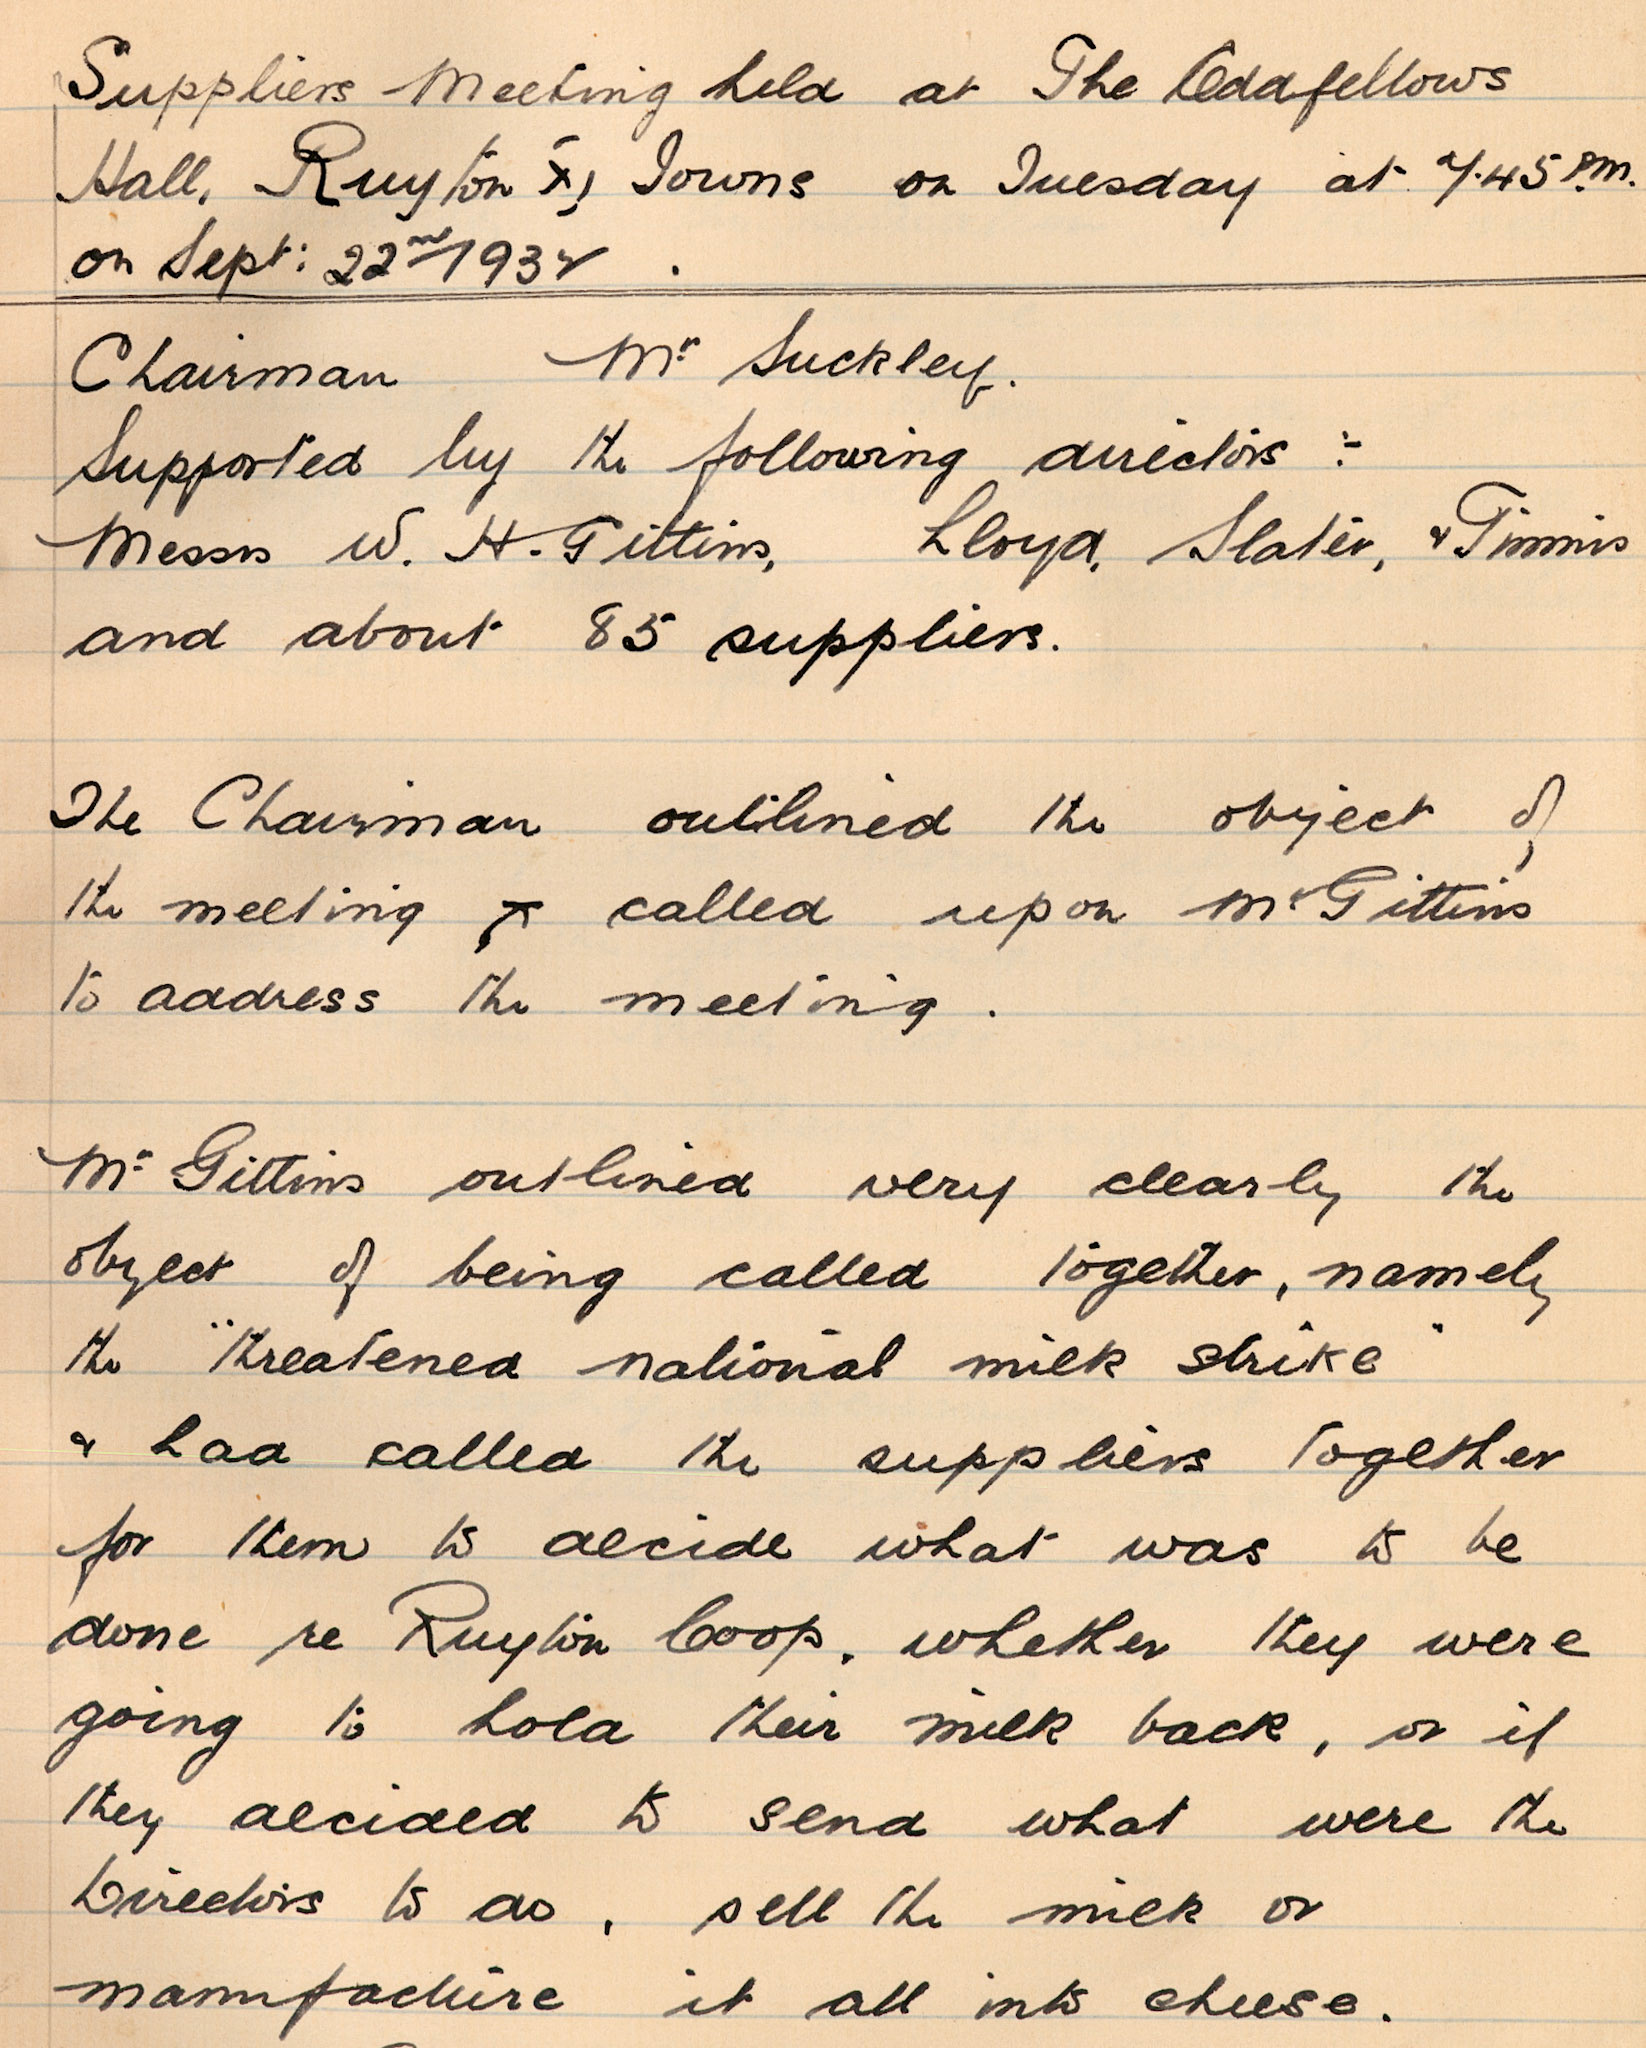 Suppliers Meeting held at The Oddfellows
Hall, Ruyton XI Towns on Tuesday at 7.45 P.M.
on Sept: 22nd 1932 .
Chairman Mr Suckley.
Supported by the following directors :-
Messrs W. H. Gittins, Lloyd, Slater, & Timmis
and about 85 suppliers.
The Chairman outlined the object of
the meeting & called upon Mr Gittins
to address the meeting .
Mr Gittins outlined very clearly the
object of being called together, namely
the "threatened national milk strike"
& had called the suppliers together
for them to decide what was to be
done re Ruyton Coop. whether they were
going to hold their milk back, or if
they decided to send what were the
Directors to do , sell the milk or
manufacture it all into cheese.